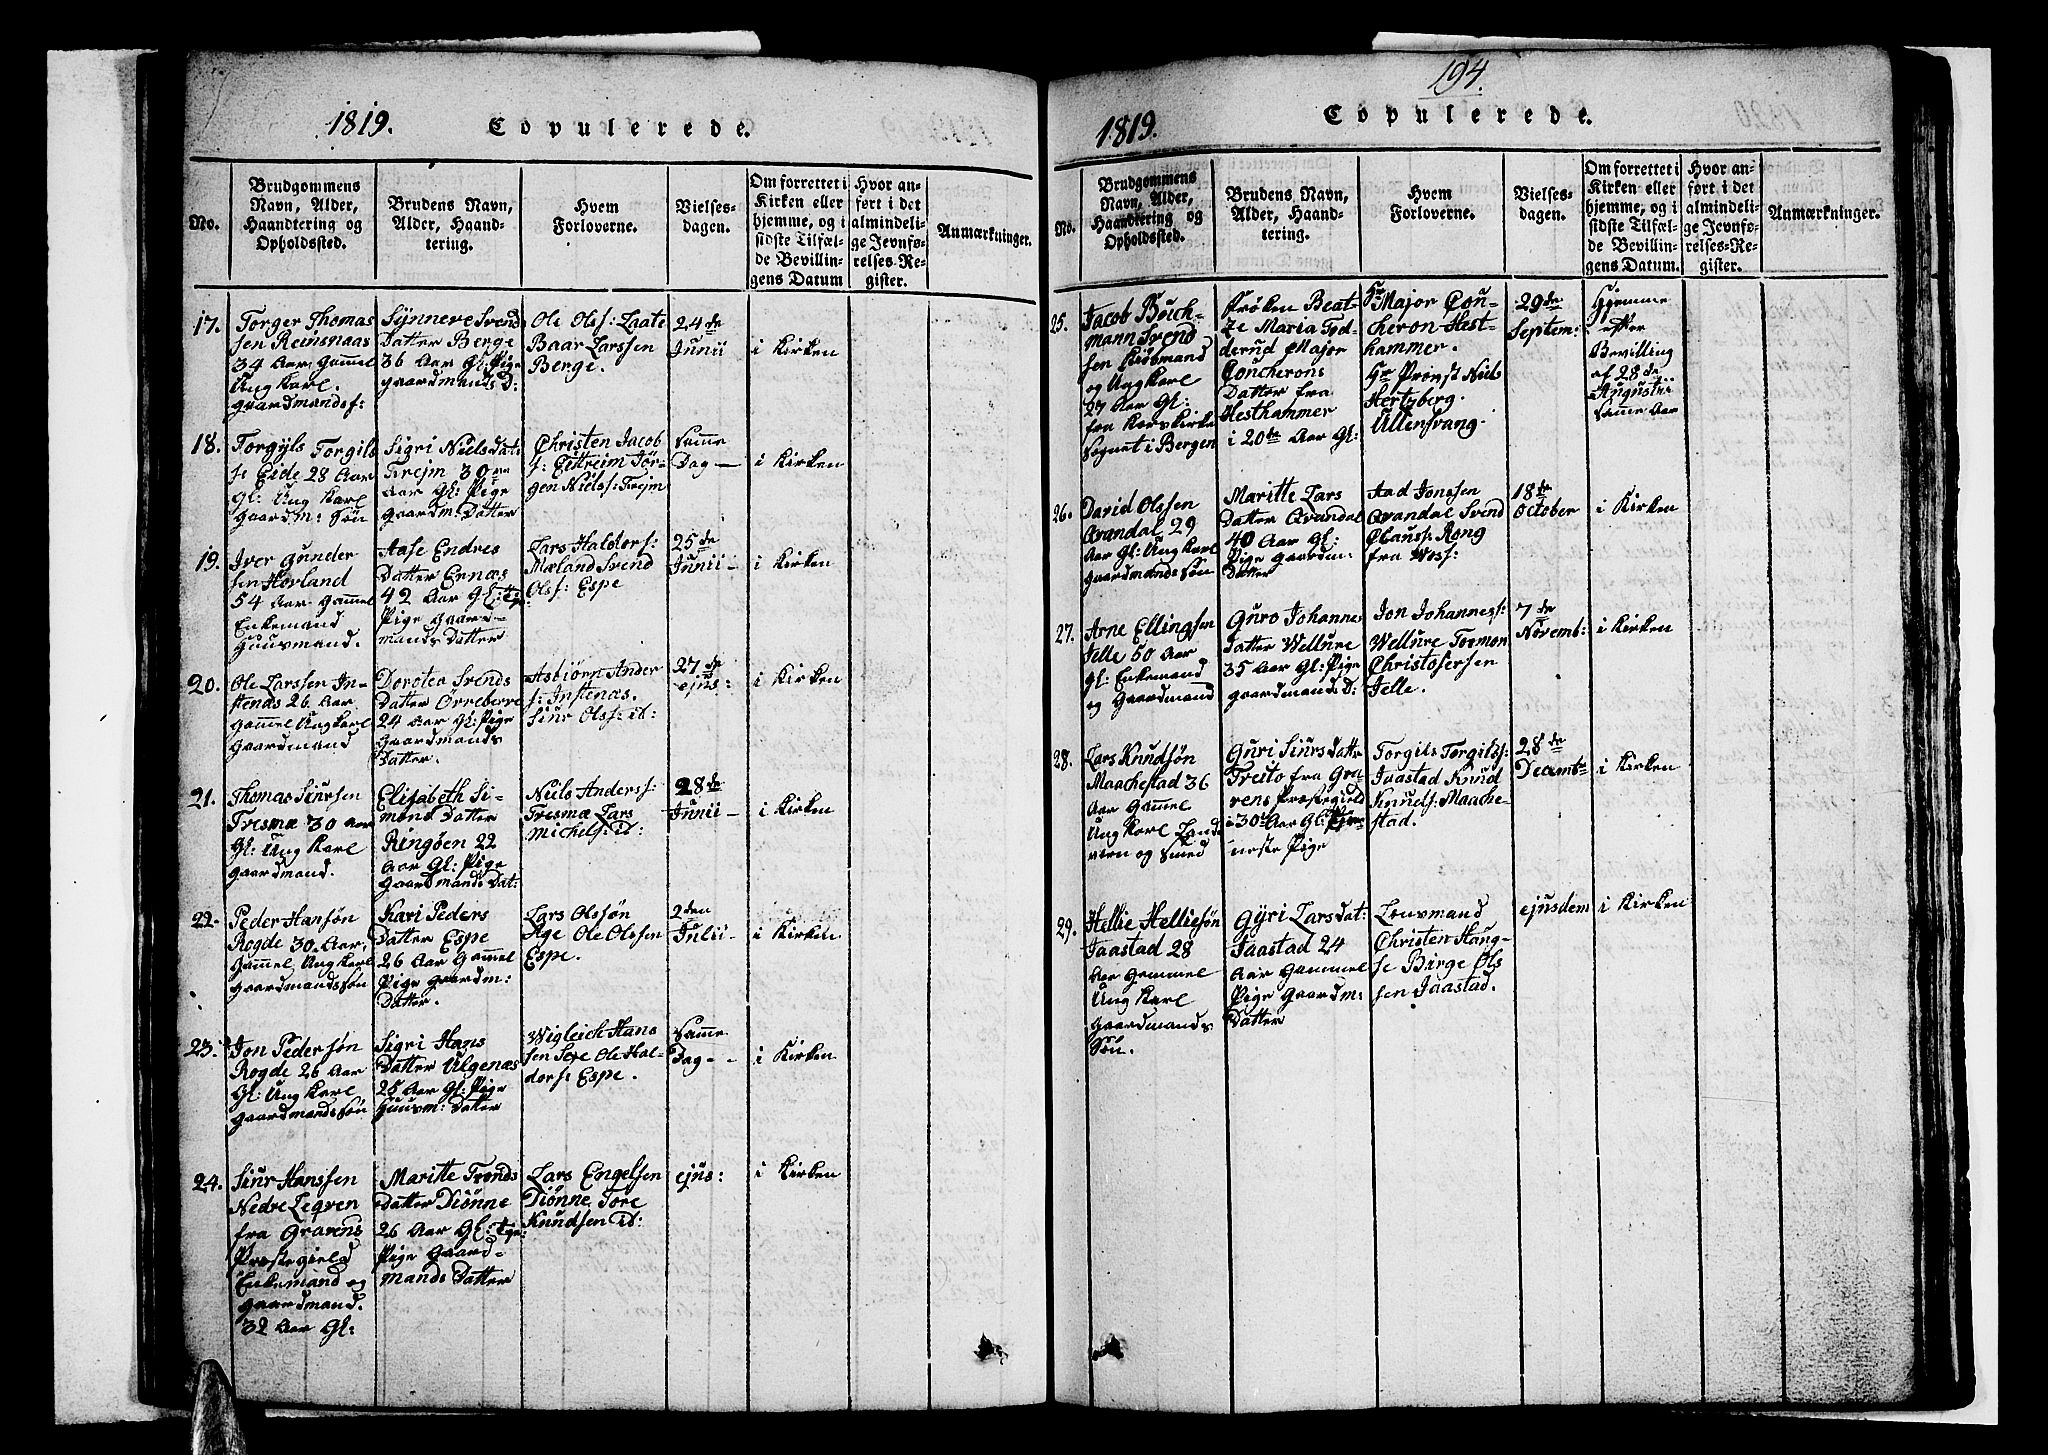 1819. Copulerede.
No.
Brudgommens
Navn, Alder,
Haandtering og
Opholdssted.
Brudens Navn,
Alder, Haand-
tering.
Hvem
Forloverne.
Vielses-
dagen.
Om forrettet i
Kirken eller
hjemme, og i
sidste Tilfæl-
de Bevillin-
gens Datum
Hvor an-
ført i det
almindeli-
ge Jevnfø-
relses-Re-
gister.
Anmærkninger.
17.
Torger Thomas
sen Reinsnaas
34 Aar Gammel
Ung Karl.
Gaardmandsf:
Synneve Svend
Datter Berge
36 Aar Gl: Pige
gaardmands D:
Ole Olsf: Laate
Baar Larssen
Berge.
24de
Junii
i Kirken
18.
Torgyls Torgils
f: Eide 28 Aar
Gl: Ung Karl
Gaardm: Søn
Sigri Nielsdat:
Trejm 30
Aar Gl: Pige
Gaardm: Datter
Christen Jacob
f: Eittreim Jör-
gen Nielsf: Trejm
Samme
Dag -
i Kirken
19.
Iver Gunder
sen Hovland
54 Aar Gammel
Enkemand
Huusmand.
Aase Endres
Datter Ernæs
42 Aar Gl:
Pige Gaard-
mands Datter
Lars Haldorf:
Mæland Svend
Olsf: Espe
25de
Junii -
i Kirken
20.
Ole Larssen In-
stenæs 26 Aar
Gammel Ung Karl
Gaardmand
Dorotea Svends
Datter Örreberre
24 Aar Gl: Pige
Gaardmands
Datter.
Asbiörn Ander
f: Instenæs.
Siur Olsf: it:
27de
ejus:
i Kirken
21.
Thomas Siursen
Tresmæ 30 Aar
Gl: Ung Karl
Gaardmand.
Elisabeth Si-
mond Datter
Ringøen 22
Aar Gl: Pige
Gaardmands Dat:
Niels Andersf:
Tresmæ Lars
Michelsf: it:
28de
Junii -
i Kirken
22.
Peder Hansøn
Rogde 30 Aar
Gammel Ung Karl
Gaardmandssøn
Kari Peders
Datter Espe
26 Aar Gammel
Pige Gaardm:
Datter.
Lars Olssøn
Age Ole Olssen
Espe.
2den
Julii -
i Kirken
23.
Jon Pedersøn
Rogde 26 Aar
Gl: Ung Karl
Gaardmandssøn
Sigri Hans
Datter Ulgenæs
25 Aar Gl: Pige
Huusm: Datter
Wigleich Hans
sen Sexe Ole Hal-
dorf: Espe.
Samme
Dag - -
i Kirken
24.
Siur Hanssen
Nedre Legren
fra Gravens
Præstegield
Enkemand og
Gaardmand.
32 Aar Gl:
Maritte Tronds
Datter Diönne
26 Aar Gl:
Pige Gaard-
mands Datter
Lars Engelsen
Diönne Tore
Knudsen it:
ejus:
i Kirken
194.
1819. Copulerede.
No.
Brudgommens
Navn, Alder,
Haandtering og
Opholdssted.
Brudens Navn,
Alder, Haand-
tering.
Hvem
Forloverne.
Vielses-
dagen.
Om forrettet i
Kirken eller
hjemme, og i
sidste Tilfæl-
de Bevillin-
gens Datum.
Hvor an-
ført i det
almindeli-
ge Jevnfø-
relses-Re-
gister.
Anmærkninger.
25.
Jacob Büch-
mann Svend
sen Kiöbmand
og Ung Karl
27 Aar Gl:
fra Korskirke
Sognet i Bergen
Fröken Beat-
ze Maria Tod-
derud Major
Concherons
Datter fra
Hesthammer
i 20de Aar Gl:
Hr Major Con-
cheron Hest-
hammer.
Hr Provst Niels
Hertzberg.
Ullensvang.
29de
Septem:
Hjemme
efter
Bevilling
af 28de
Augustii
samme Aar
26.
David Olssen
Qvandal 29
Aar Gl: Ung Karl
Gaardmands Søn
Maritte Lars
Datter Qvandal
40 Aar Gl:
Pige Gaardm:
Datter
Aad Jonssen
Qvandal Svend
Clausf: Rong
fra Wosf:
18de
October
i Kirken
27.
Arne Ellingsen
Jelle 50 Aar
Gl: Enkemand
og Gaardmand
Guro Johannes
Datter Wellure
35 Aar Gl: Pige
gaardmands D:
Jon Johannesf:
Wellure Tormon
Christofersen
Jelle.
7de
Novemb:
i Kirken
28.
Lars Knudsøn
Maachestad 36
Aar Gammel
Ung Karl Land
værn og Smed
Guri Siursdatter
Treito fra Gra-
vens Præstegield
i 30 Aar Gl:
neste Pige
Torgils Torgilsf:
Jaastad Knud
Knudsf: Maache-
stad.
28de
Decemb
i Kirken
29.
Hellie Helliesøn
Jaastad 28
Aar Gammel
Ung Karl
Gaardmands
Søn.
Gyri Larsdat:
Jaastad 24
Aar Gammel
Pige Gaardm:
Datter
Lensmand
Christen Haug-
se Birge Ols
sen Jaastad.
ejusdem
i Kirken